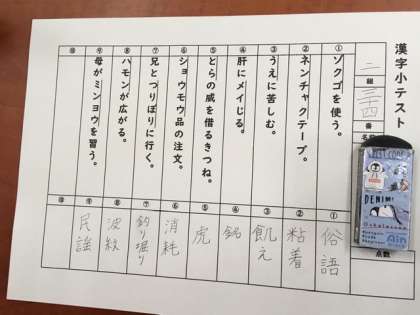 漢字小テスト
二組三十四番
名前
点数
① ゾクゴを使う。
② ネンチャクテープ。
③ うえに苦しむ。
④ 肝にメイじる。
⑤ とらの威を借るきつね。
⑥ ショウモウ品の注文。
⑦ 兄とつりぼりに行く。
⑧ ハモンが広がる。
⑨ 母がミンヨウを習う。
⑩
① 俗語
② 粘着
③ 飢え
④ 銘
⑤ 虎
⑥ 消耗
⑦ 釣り堀り
⑧ 波紋
⑨ 民謡
⑩
DENIM
Ain